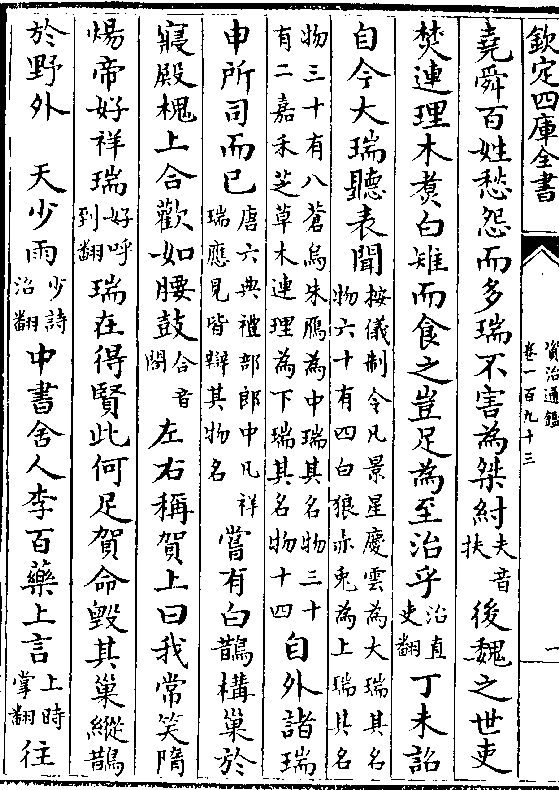 欽定四庫全書
資治通鑑
卷一百九十三
一
堯舜百姓愁怨而多瑞不害為桀紂夫音扶後魏之世吏
焚連理木煑白雉而食之豈足為至治乎治直吏翻丁未詔
自今大瑞聽表聞按儀制令凡景星慶雲為大瑞其名物六十有四白狼赤兎為上瑞其名
物三十有八蒼烏朱鴈為中瑞其名物三十有二嘉禾芝草木連理為下瑞其名物十四自外諸瑞
申所司而已唐六典禮部郎中凡祥瑞應見皆辯其物名嘗有白鵲構巢於
寢殿槐上合歡如腰鼓合音閤左右稱賀上曰我常笑隋
煬帝好祥瑞好呼到翻瑞在得賢此何足賀命毀其巢縱鵲
於野外　天少雨少詩沼翻中書舍人李百藥上言上時掌翻往